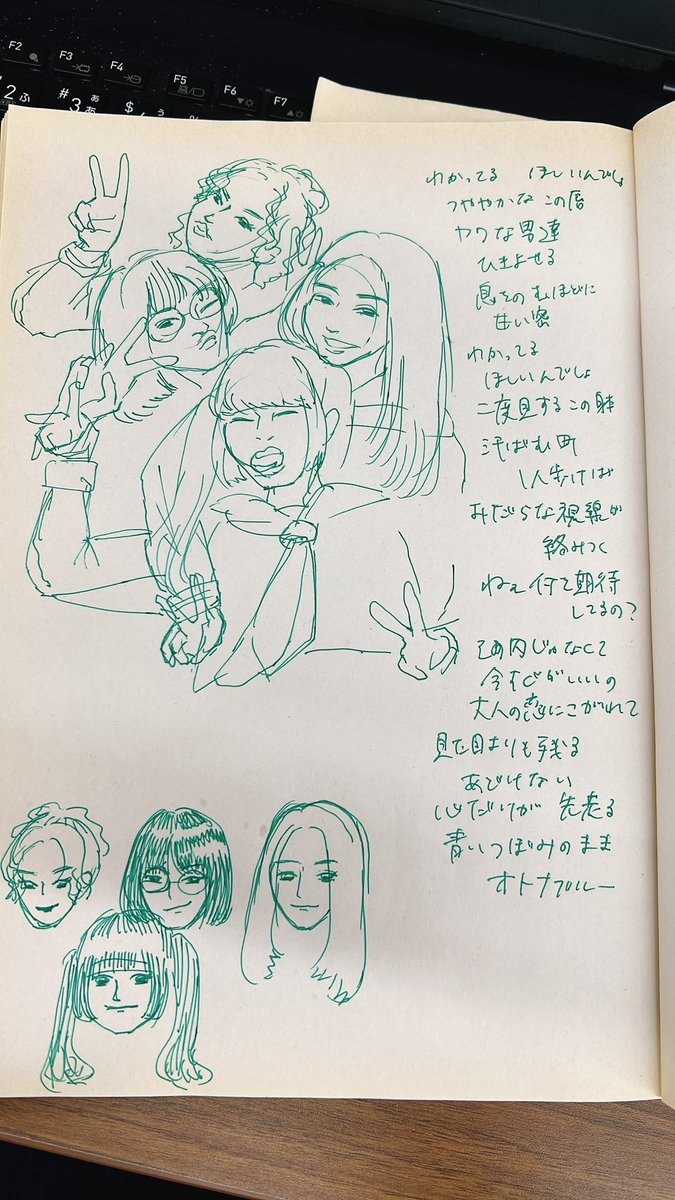 F2
F3
F4
F5
F6
F7
2 ふ
# 3 ぁ あ
$ ぅ
わかってる ほしいんでしょ
つややかな この唇
ヤワな男達
ひきよせる
息をのむほどに
甘い蜜
わかってる
ほしいんでしょ
二度見するこの躰
汗ばむ町
1人歩けば
みだらな視線が
絡みつく
ねぇ何て期待
してるの?
その内じゃなくて
今すぐがいいの
大人の恋にこがれて
見た目よりも残る
あどけない
心だけが 先走る
青いつぼみのまま
オトナブルー